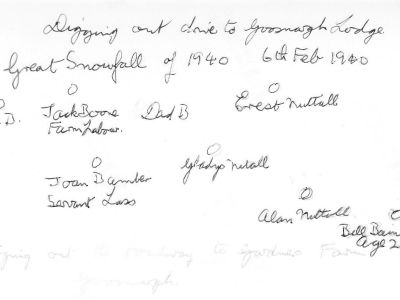 Digging out drive to Goosnargh Lodge
Great Snowfall of 1940 6th Feb 1940
B. Jack Boone Dad B Ernest Nuttall
Farm Labour.
Joan Bamber Gladys Nuttall
Servant Lass
Alan Nuttall
Bill Bam
Age 2
out to roadway to Farm
Goosnargh